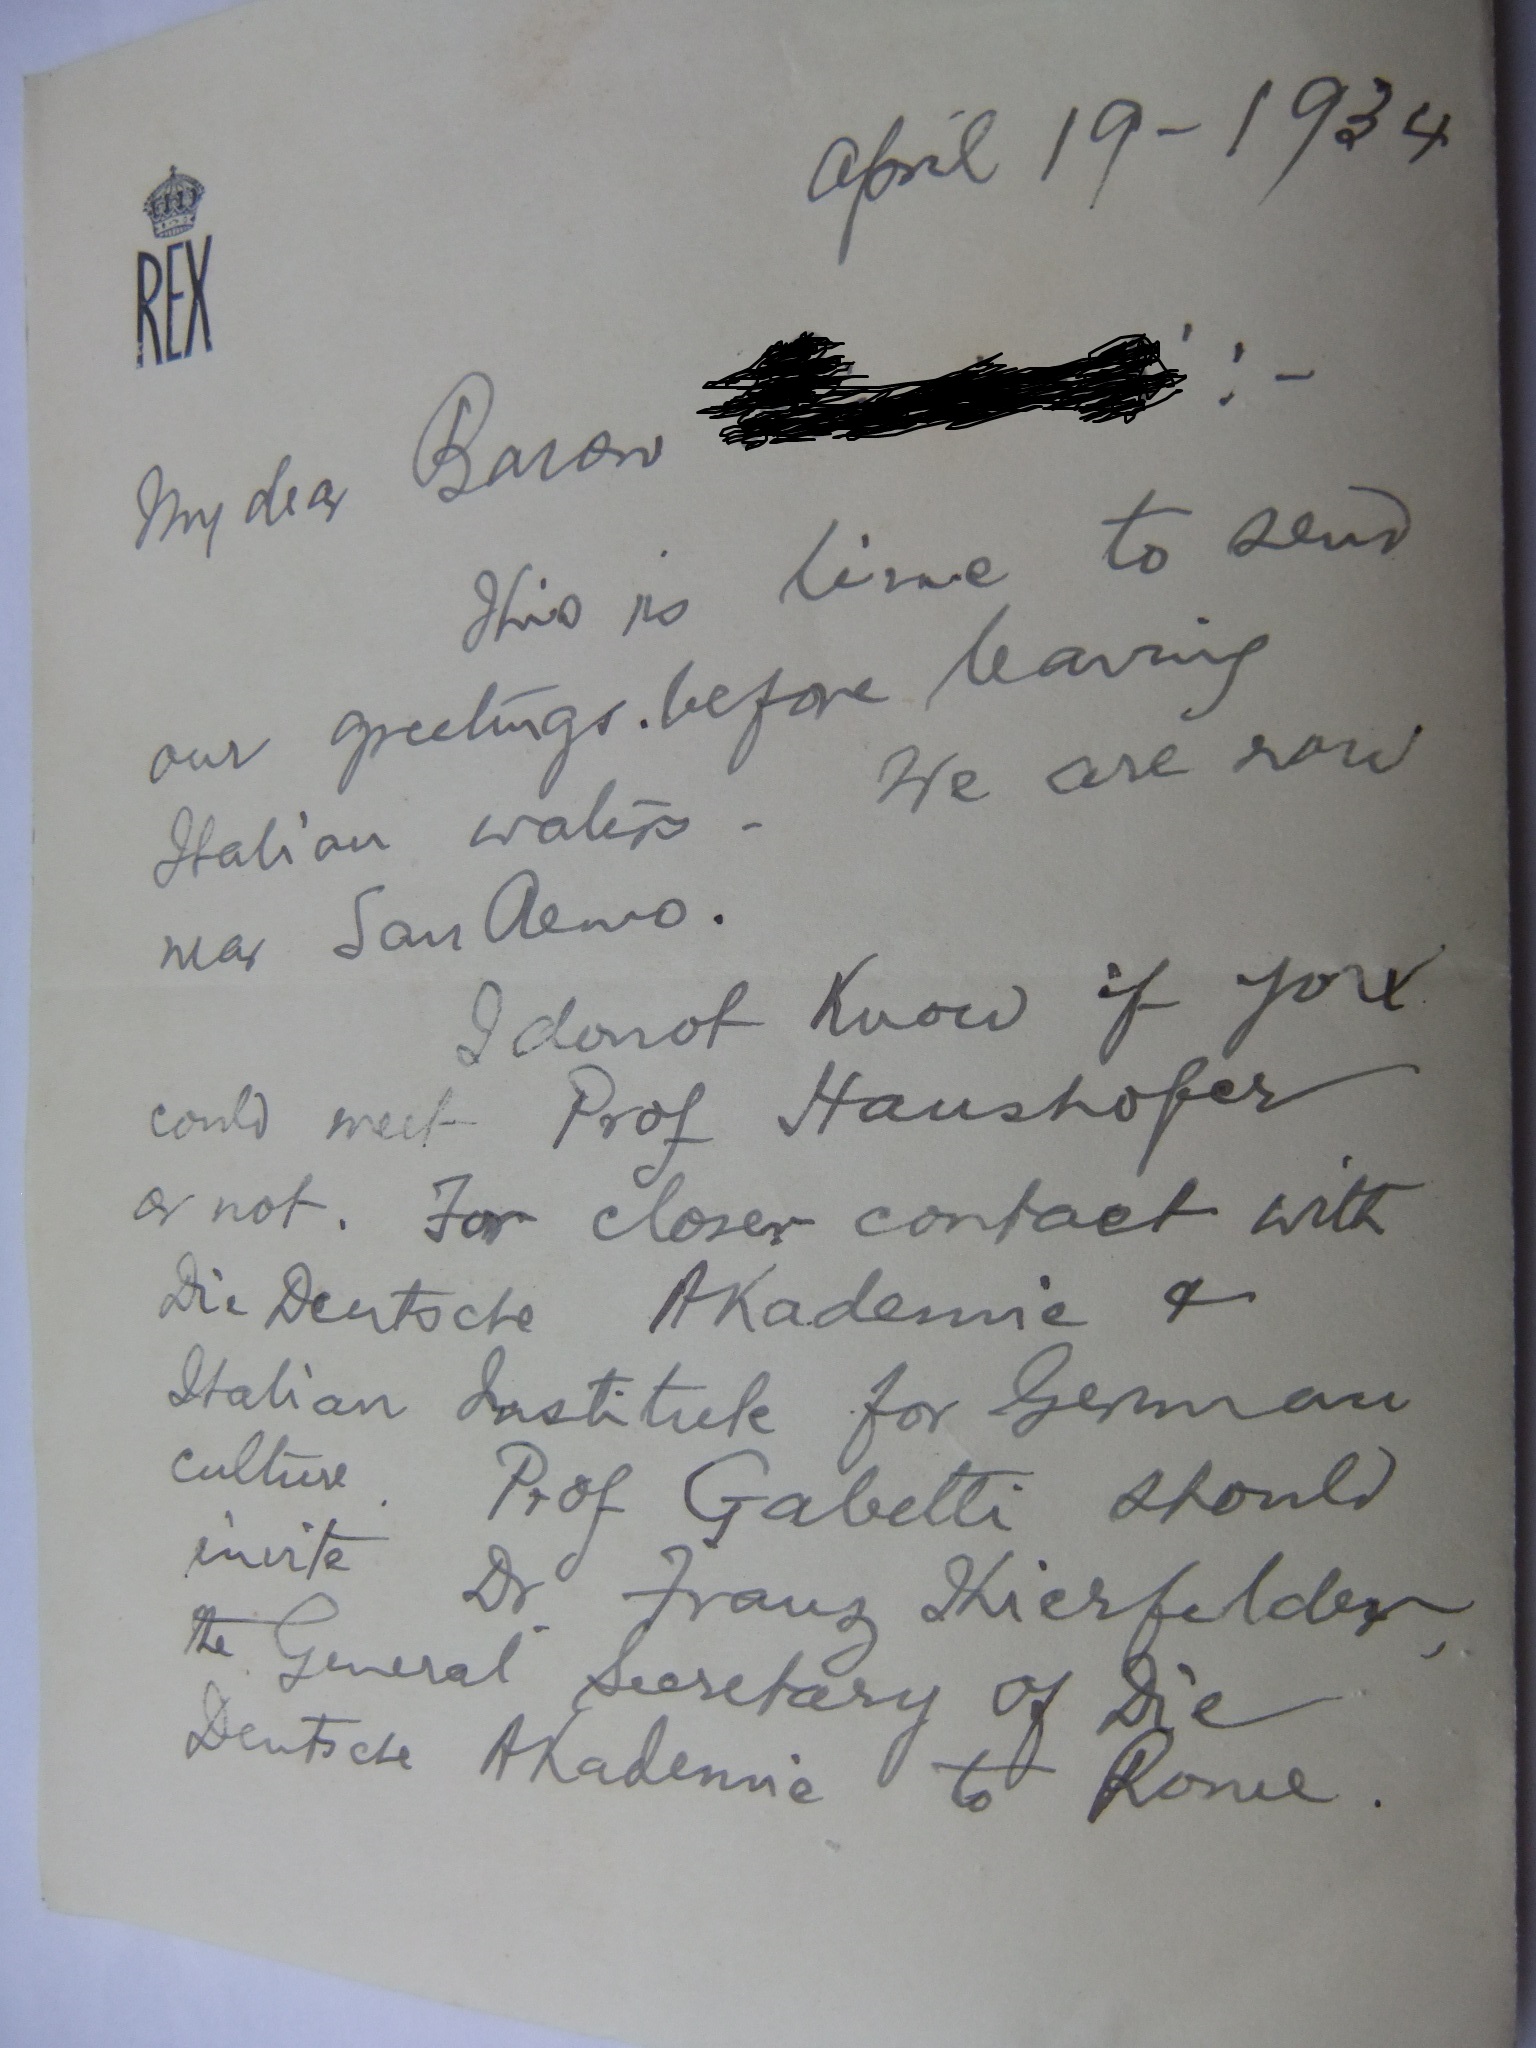 REX
April 19-1934
My dear Baron :-
This is time to send
our greetings. before leaving
Italian waters - We are now
near San Remo.
I do not know if you
could meet Prof Haushofer
or not. For closer contact with
Die Deutsche Akademie &
Italian Institute for German
culture. Prof Gabetti should
invite Dr. Franz Thierfelder,
the General Secretary of Die
Deutsche Akademie to Rome.